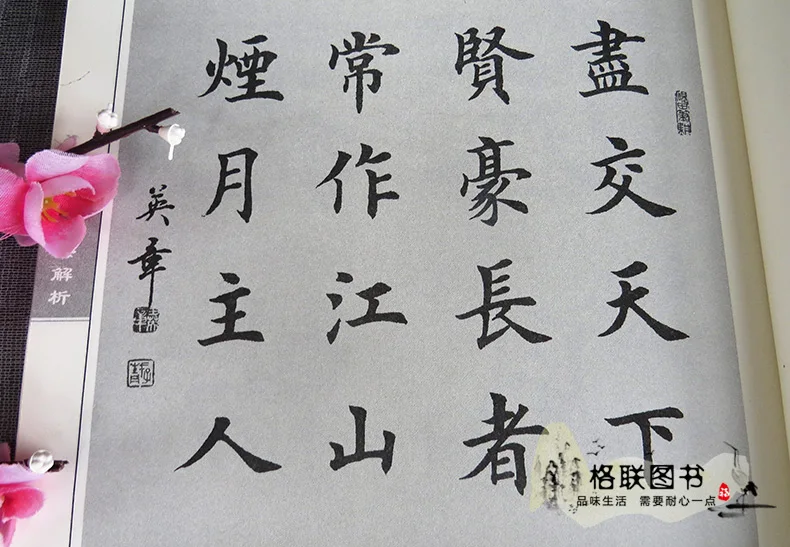 盡交天下
賢豪長者
常作江山
煙月主人
英章
解析
格联图书
品味生活 需要耐心一点